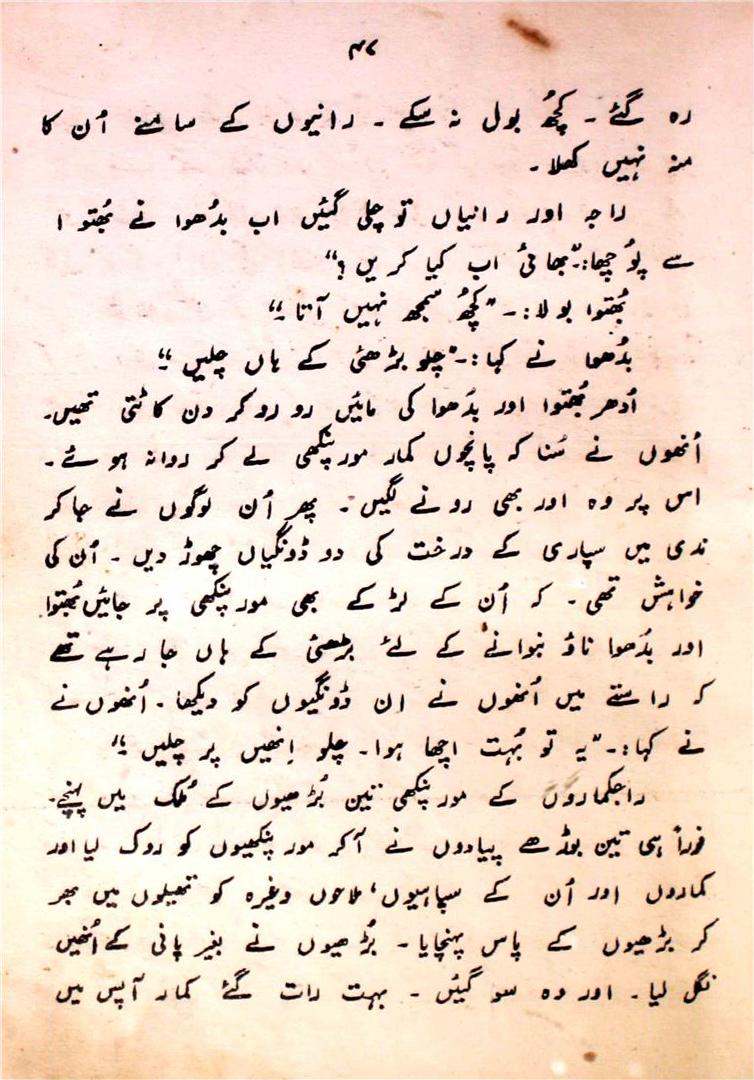 ۴۷
رہ گئے ۔ کچھُ بول نہ سکے ۔ رانیوں کے سامنے اُن کا
منہ نہیں کھلا ۔
راجہ اور رانیاں تو چلی گئیں اب بدُھوا نے بُھتوا
سے پوُچھا:۔"بھائی اب کیا کریں ؟"
بُھتوا بولا :۔ "کچھُ سمجھ نہیں آتا ۔"
بدُھوا نے کہا :۔"چلو بڑھئی کے ہاں چلیں ۔"
اُدھر بُھتوا اور بدُھوا کی مائیں رو رو کر دن کاٹتی تھیں۔
اُنھوں نے سُنا کہ پانچوں کمار مور پنکھی لے کر روانہ ہوئے ۔
اس پر وہ اور بھی رونے لگیں ۔ پھر اُن لوگوں نے جا کر
ندی میں سپاری کے درخت کی دو ڈونگیاں چھوڑ دیں ۔ اُن کی
خواہش تھی ۔ کہ اُن کے لڑکے بھی مور پنکھی پر جائیں بُھتوا
اور بدُھوا ناؤ بنوانے کے لئے بڑھئی کے ہاں جا رہے تھے
کہ راستے میں اُنھوں نے ان ڈونگیوں کو دیکھا ۔ اُنھوں نے
نے کہا :۔ "یہ تو بُہت اچھا ہوا ۔ چلو اِنھیں پر چلیں ۔"
راجکماروں کے مور پنکھی تین بُڑھیوں کے مُلک میں پہنچے۔
فوراً ہی تین بوڑھے پیادوں نے آ کر مور پنکھیوں کو روک لیا اور
کماروں اور اُن کے سپاہیوں، ملاحوں وغیرہ کو تھیلوں میں بھر
کر بڑھیوں کے پاس پہنچایا ۔ بُڑھیوں نے بغیر پانی کے اُنھیں
نگل لیا ۔ اور وہ سو گئیں ۔ بہت رات گئے کمار آپس میں